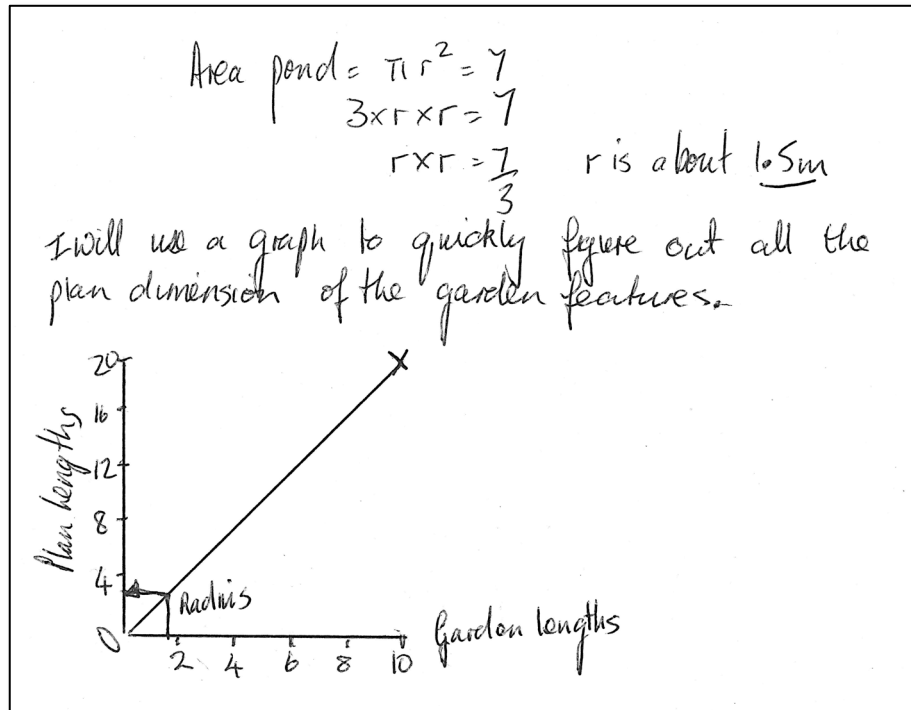 Area pond = πr² = 7
3×r×r = 7
r×r = 7/3 r is about 1.5m
I will use a graph to quickly figure out all the
plan dimension of the garden features.
20
16
12
8
4
0
Plan lengths
Radius
2 4 6 8 10
Garden lengths